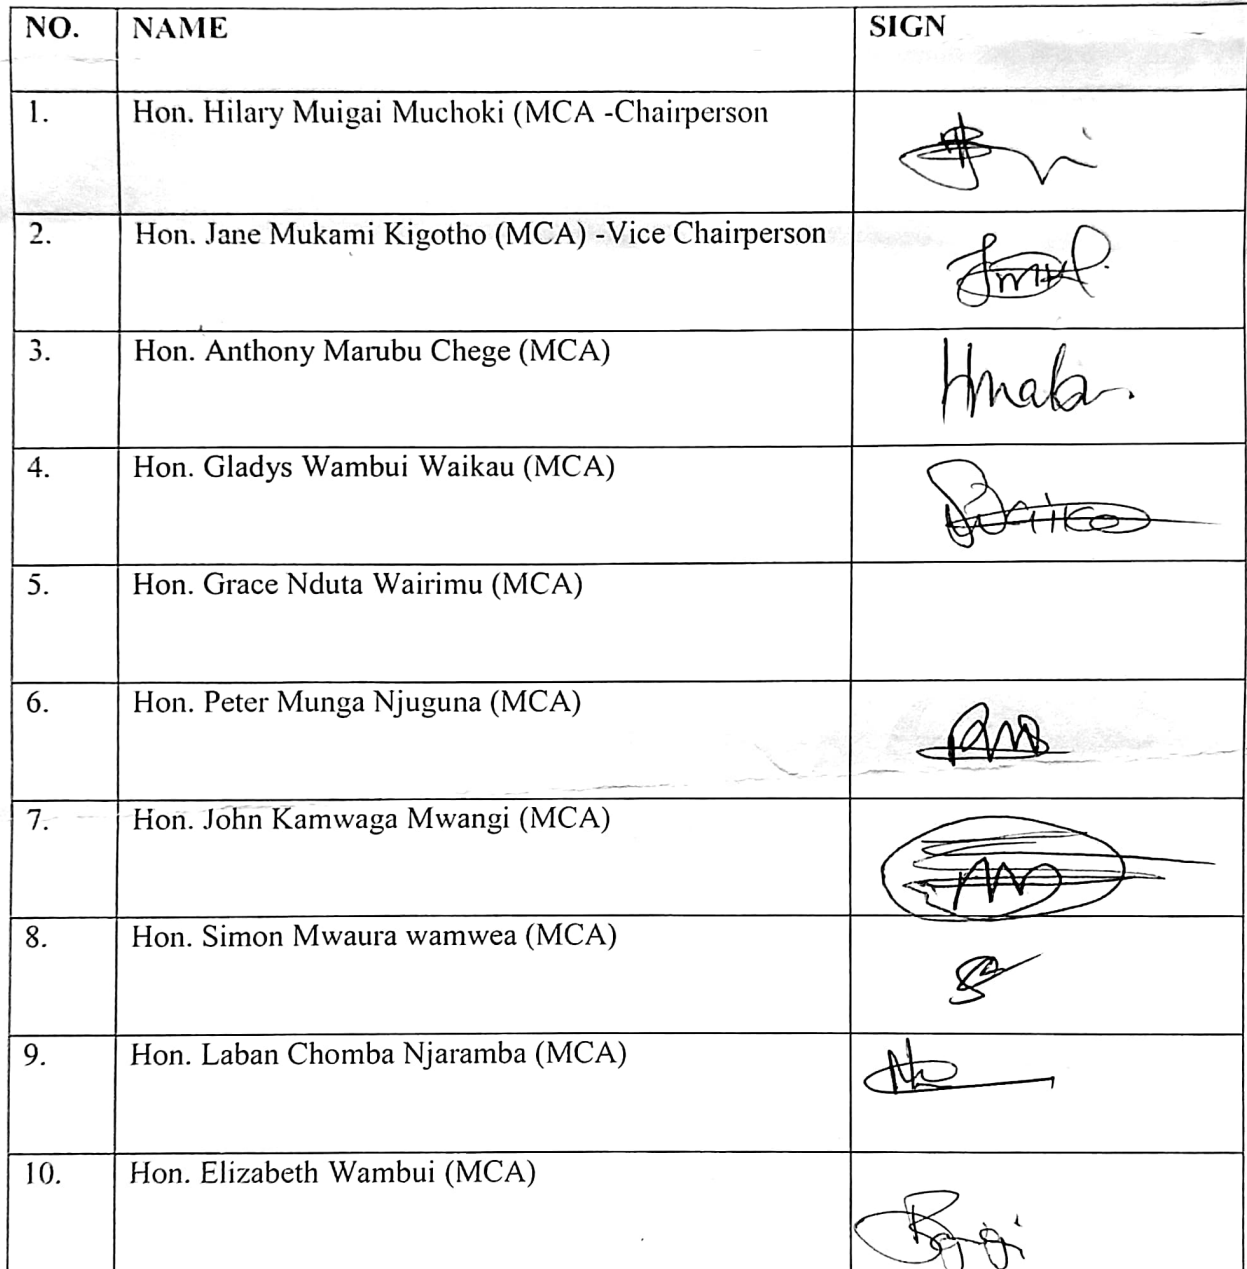 NO. NAME SIGN
1. Hon. Hilary Muigai Muchoki (MCA -Chairperson
2. Hon. Jane Mukami Kigotho (MCA) -Vice Chairperson
3. Hon. Anthony Marubu Chege (MCA)
4. Hon. Gladys Wambui Waikau (MCA)
5. Hon. Grace Nduta Wairimu (MCA)
6. Hon. Peter Munga Njuguna (MCA)
7. Hon. John Kamwaga Mwangi (MCA)
8. Hon. Simon Mwaura wamwea (MCA)
9. Hon. Laban Chomba Njaramba (MCA)
10. Hon. Elizabeth Wambui (MCA)